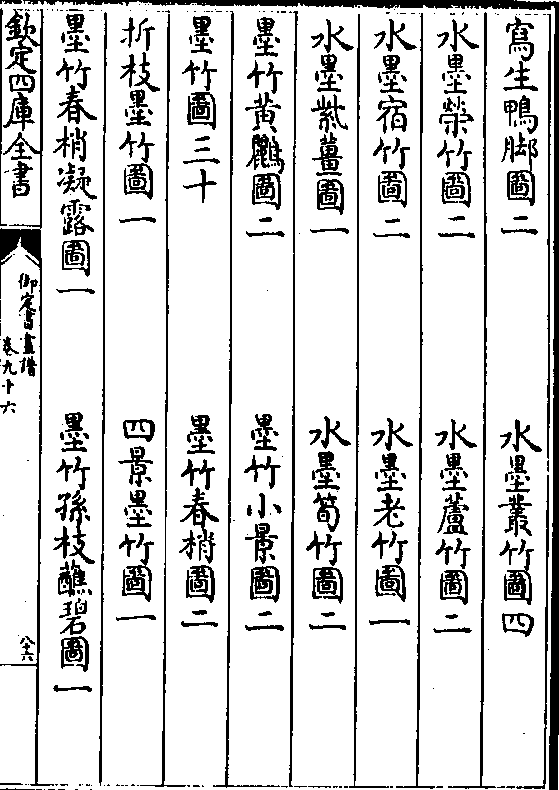 寫生鴨脚圖二　水墨叢竹圖四
水墨榮竹圖二　水墨蘆竹圖二
水墨宿竹圖二　水墨老竹圖一
水墨紫薑圖一　水墨筍竹圖二
墨竹黃鸝圖二　墨竹小景圖二
墨竹圖三十　墨竹春梢圖二
折枝墨竹圖一　四景墨竹圖一
墨竹春梢凝露圖一　墨竹孫枝蘸碧圖一
欽定四庫全書
御定書畫譜
卷九十六
八六